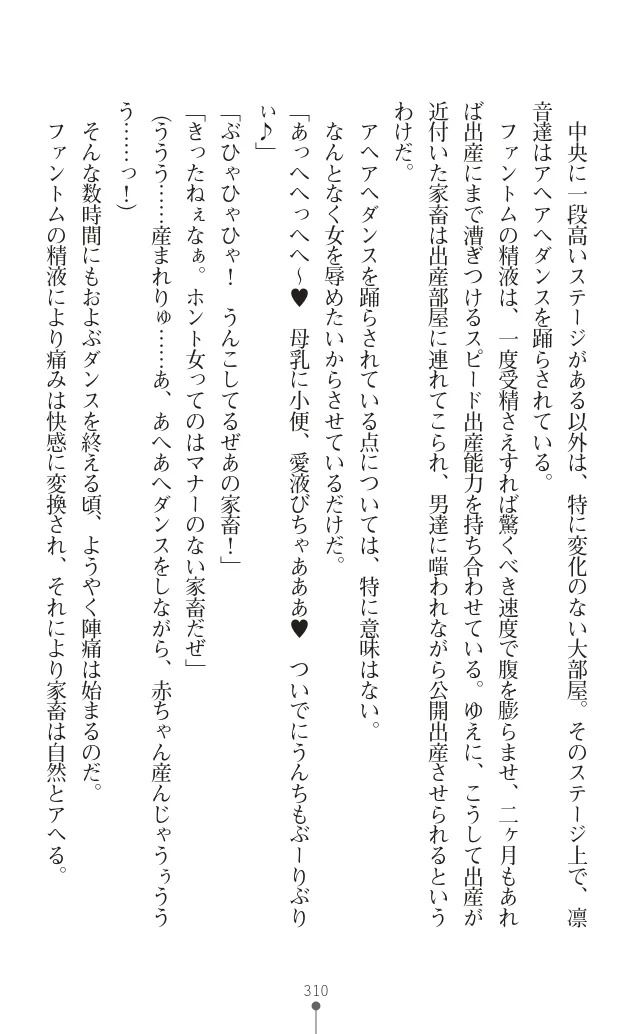 中央に一段高いステージがある以外は、特に変化のない大部屋。そのステージ上で、凛
音達はアヘアヘダンスを踊らされている。
ファントムの精液は、一度受精さえすれば驚くべき速度で腹を膨らませ、二ヶ月もあれ
ば出産にまで漕ぎつけるスピード出産能力を持ち合わせている。ゆえに、こうして出産が
近付いた家畜は出産部屋に連れてこられ、男達に嗤われながら公開出産させられるという
わけだ。
アヘアヘダンスを踊らされている点については、特に意味はない。
なんとなく女を辱めたいからさせているだけだ。
「あっへへっへへ~♥　母乳に小便、愛液びちゃあああ♥　ついでにうんちもぶーりぶり
ぃ♪」
「ぶひゃひゃひゃ!　うんこしてるぜあの家畜!」
「きったねぇなぁ。ホント女ってのはマナーのない家畜だぜ」
(ううう……産まれりゅ……あ、あへあへダンスをしながら、赤ちゃん産んじゃうぅうう
う……っ!)
そんな数時間にもおよぶダンスを終える頃、ようやく陣痛は始まるのだ。
ファントムの精液により痛みは快感に変換され、それにより家畜は自然とアヘる。
310